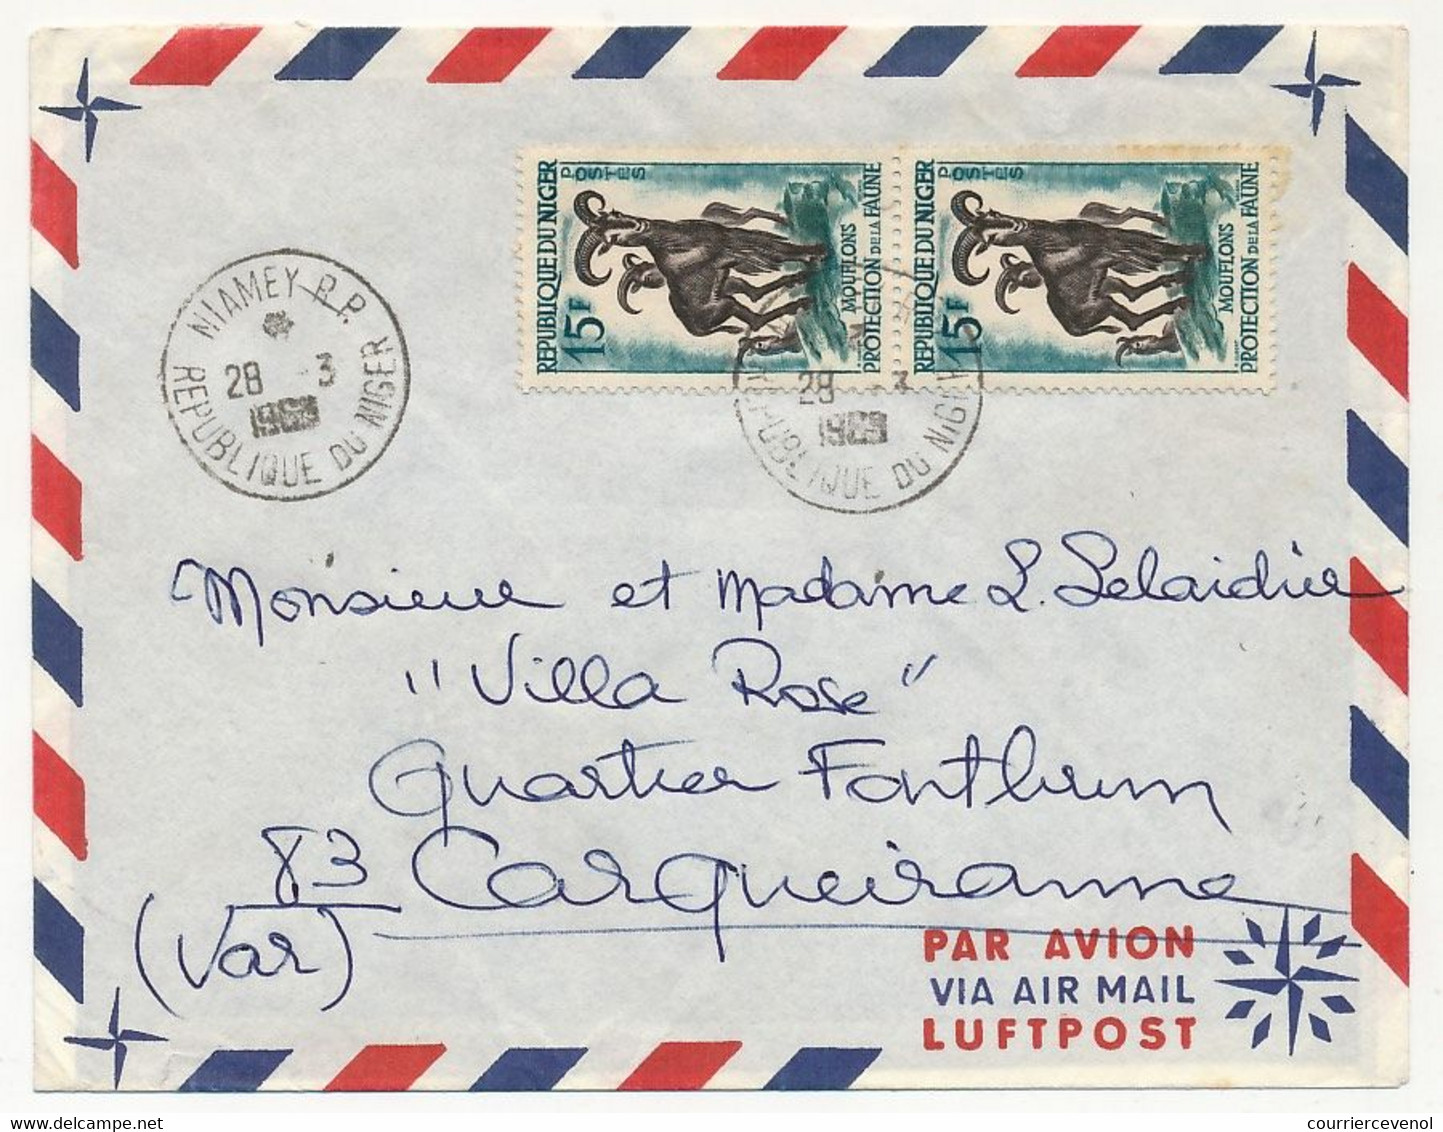 REPUBLIQUE DU NIGER
POSTES
15F
MOUFLONS
PROTECTION DE LA FAUNE
REPUBLIQUE DU NIGER
POSTES
15F
MOUFLONS
PROTECTION DE LA FAUNE
NIAMEY R.P.
28 -3
REPUBLIQUE DU NIGER
28 3
REPUBLIQUE DU NIGER
Monsieur et Madame L. Lelaidier
"Villa Rose"
Quartier Fontbrun
83 Carqueiranne
(Var)
PAR AVION
VIA AIR MAIL
LUFTPOST
www.delcampe.net
courriercevenol